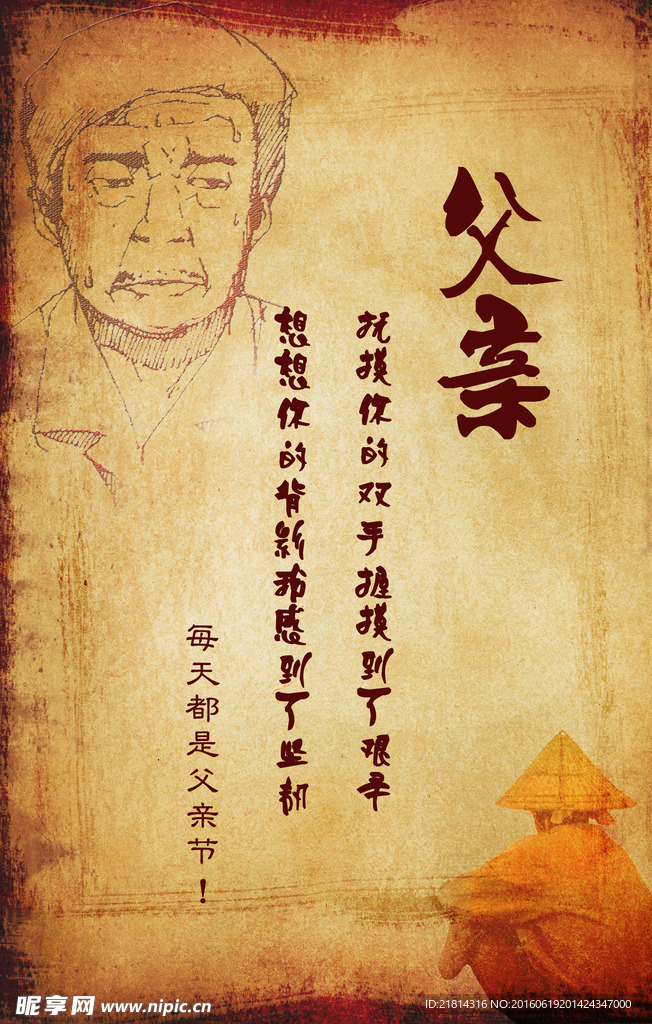 父亲
抚摸你的双手握摸到了艰辛
想想你的背影我感到了坚韧
每天都是父亲节！
昵享网 www.nipic.cn
ID:21814316 NO:20160619201424347000